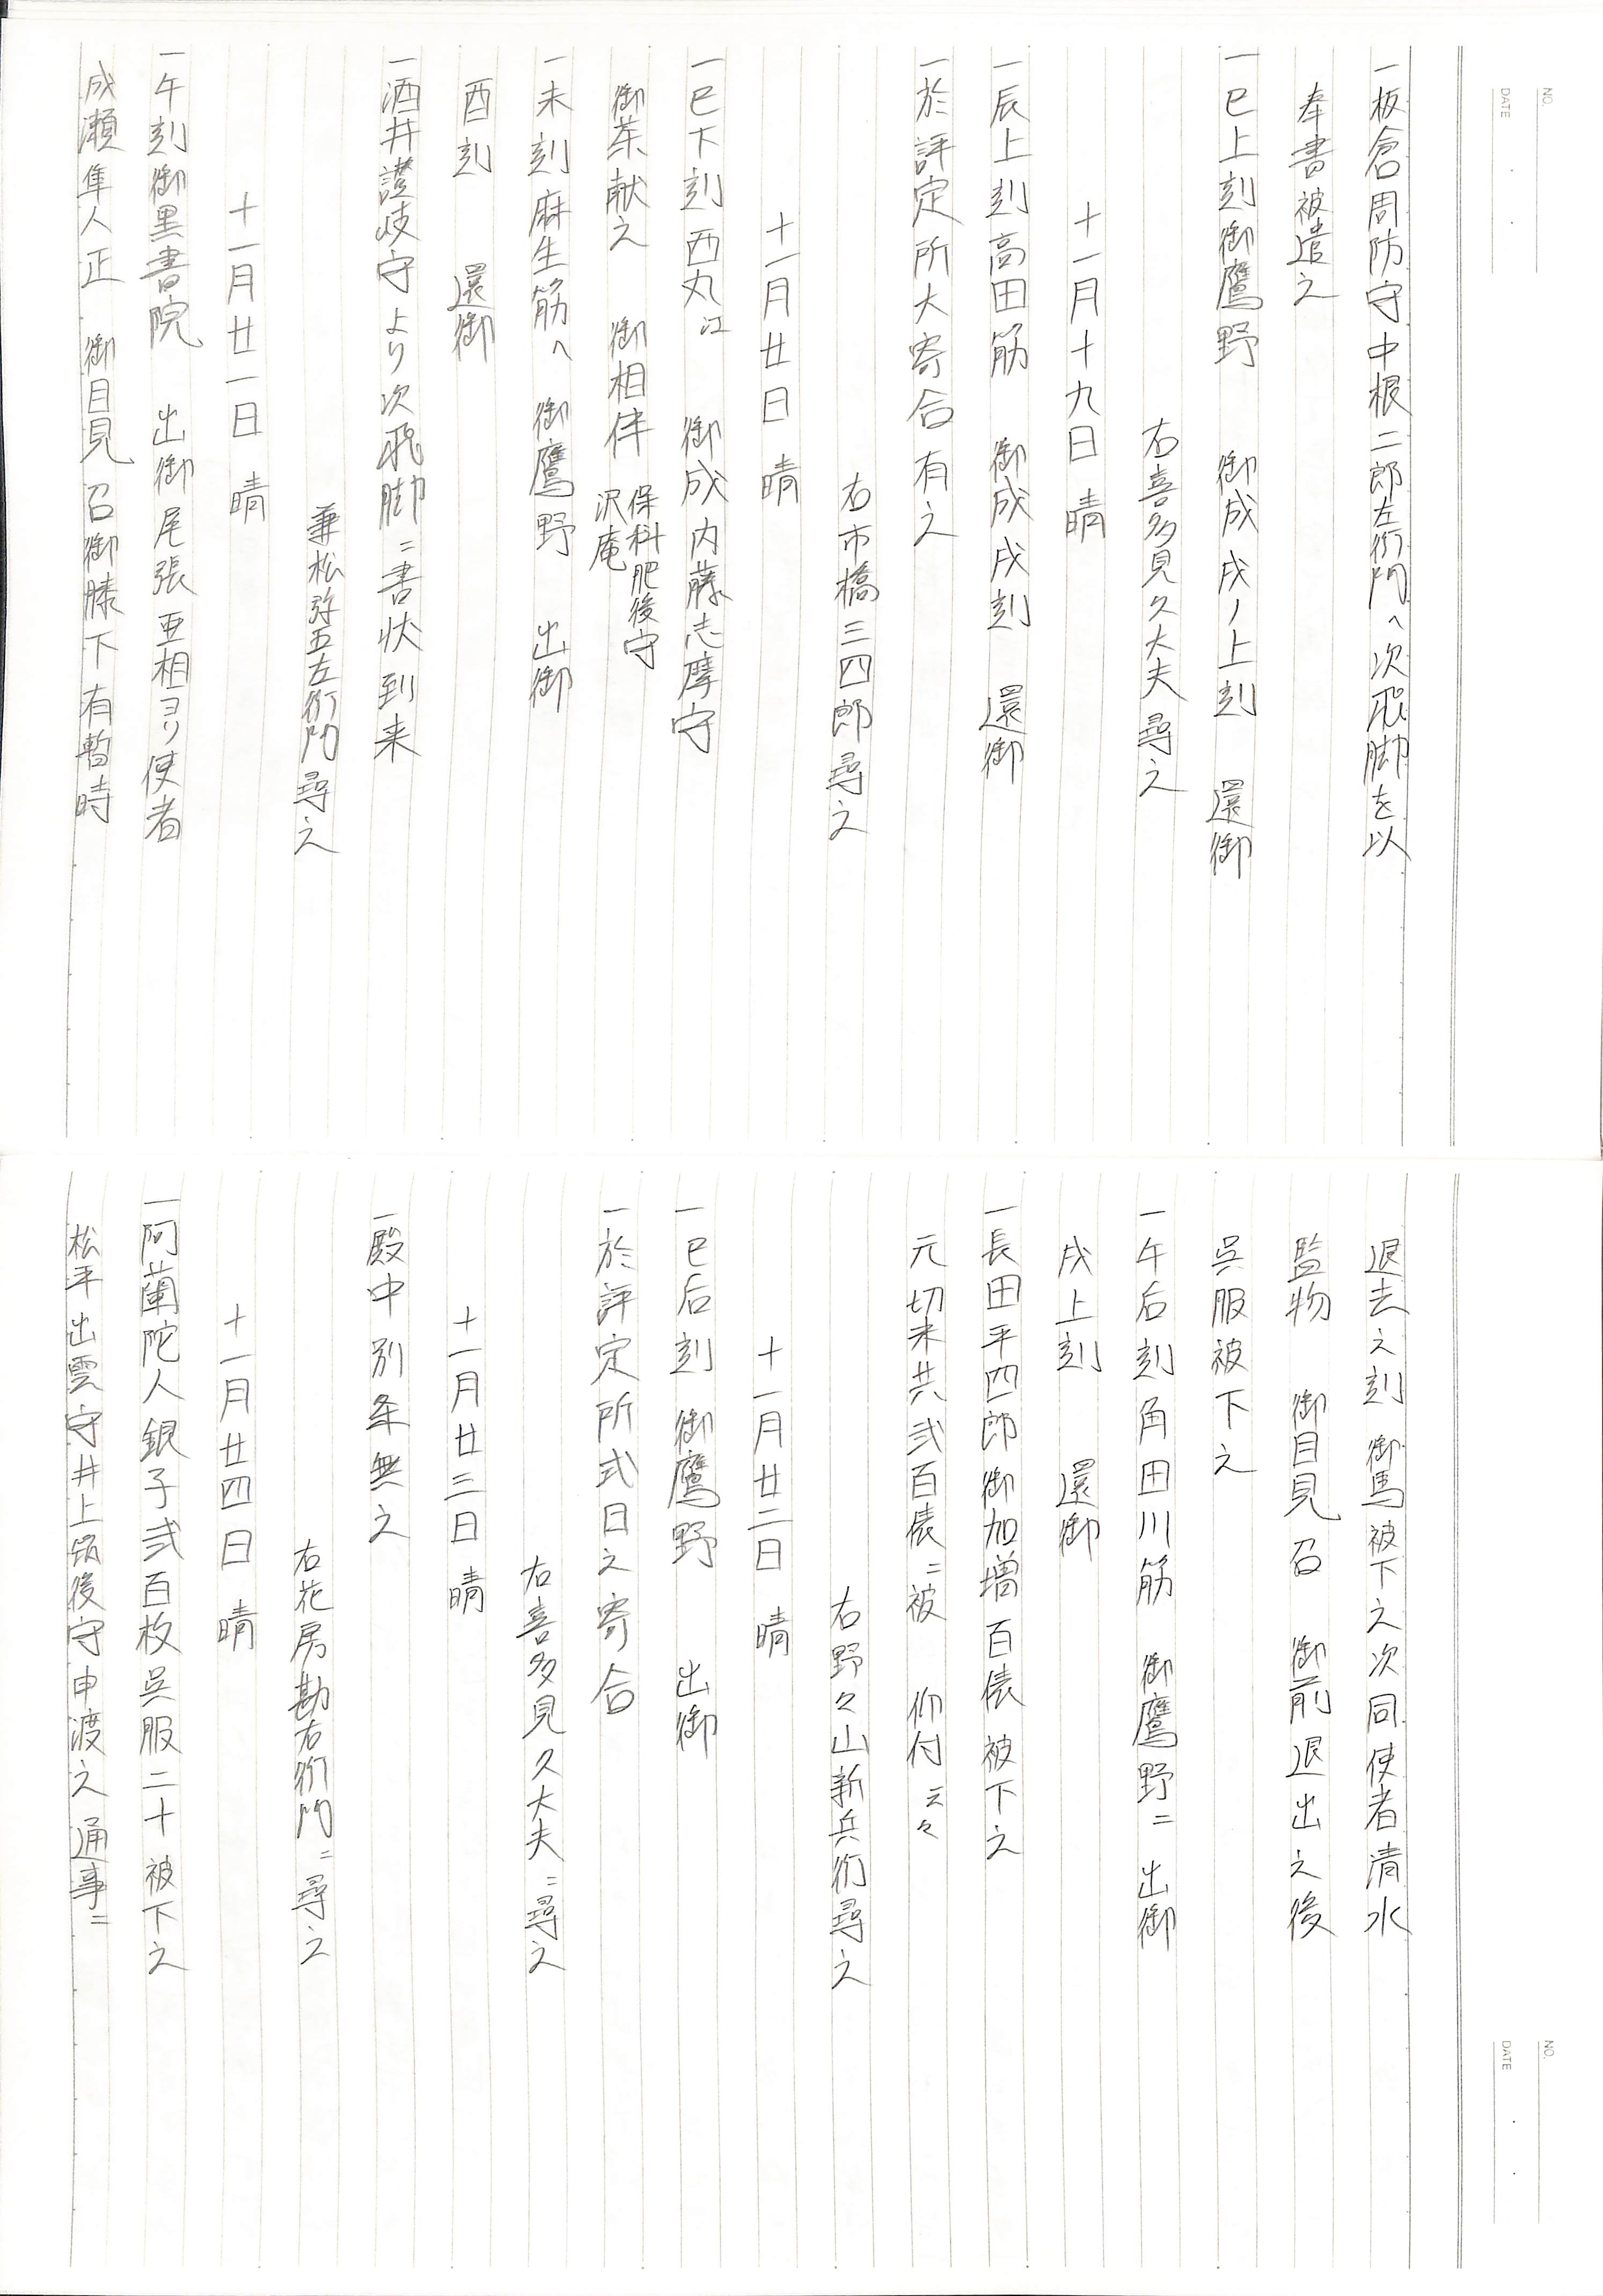 NO.
DATE
一板倉周防守中根二郎左衛門へ次飛脚を以
奉書被遣之
一巳上刻御鷹野 御成戌ノ上刻 還御
右喜多見久大夫尋之
十一月十九日 晴
一辰上刻高田筋 御成戌刻 還御
一於評定所大寄合有之
右市橋三四郎尋之
十一月廿日 晴
一巳下刻西丸江 御成内藤志摩守
御茶献之 御相伴 保科肥後守
沢庵
一未刻麻生筋へ 御鷹野 出御
酉刻 還御
一酒井讃岐守より次飛脚ニ書状到来
兼松弥五左衛門尋之
十一月廿一日 晴
一午刻御黒書院 出御尾張亜相ヨリ使者
成瀬隼人正 御目見召御膝下有暫時
NO.
DATE
退去之刻 御馬被下之次同使者清水
監物 御目見召 御前退出之後
呉服被下之
一午后刻角田川筋 御鷹野ニ 出御
戌上刻 還御
一長田平四郎御加増百俵被下之
元切米共弐百俵ニ被 仰付云々
右野々山新兵衛尋之
十一月廿二日 晴
一巳后刻御鷹野 出御
一於評定所式日之寄合
右喜多見久大夫ニ尋之
十一月廿三日 晴
一殿中別条無之
右花房勘右衛門ニ尋之
十一月廿四日 晴
一阿蘭陀人銀子弐百枚呉服二十被下之
松平出雲守井上筑後守申渡之通事ニ